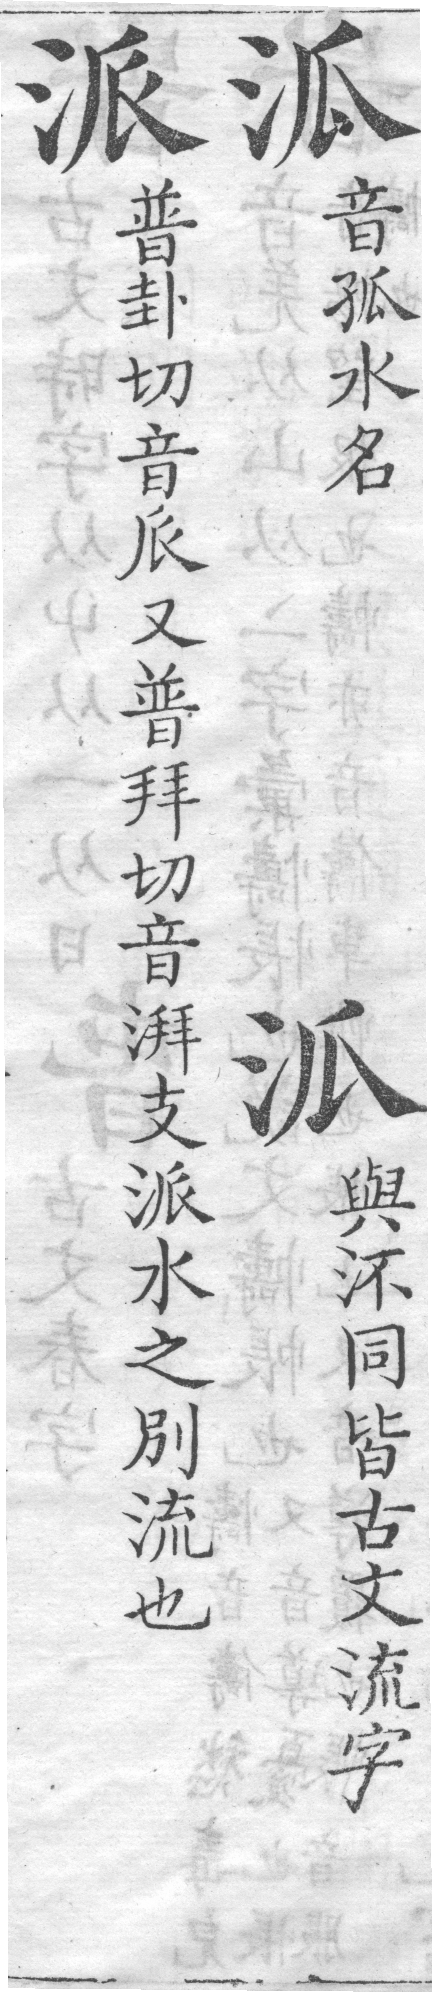 泒音孤水名
沠與㳅同皆古文流字
派普卦切音𠂢又普拜切音湃支派水之別流也